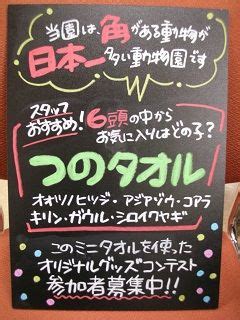 当園は、角がある動物が
日本一多い動物園です
スタッフ
おすすめ！
6頭の中から
お気に入りはどの子？
つのタオル
オオツノヒツジ・アジアゾウ・コアラ
キリン・ガウル・シロイワヤギ
このミニタオルを使った
オリジナルグッズコンテスト
参加者募集中!!